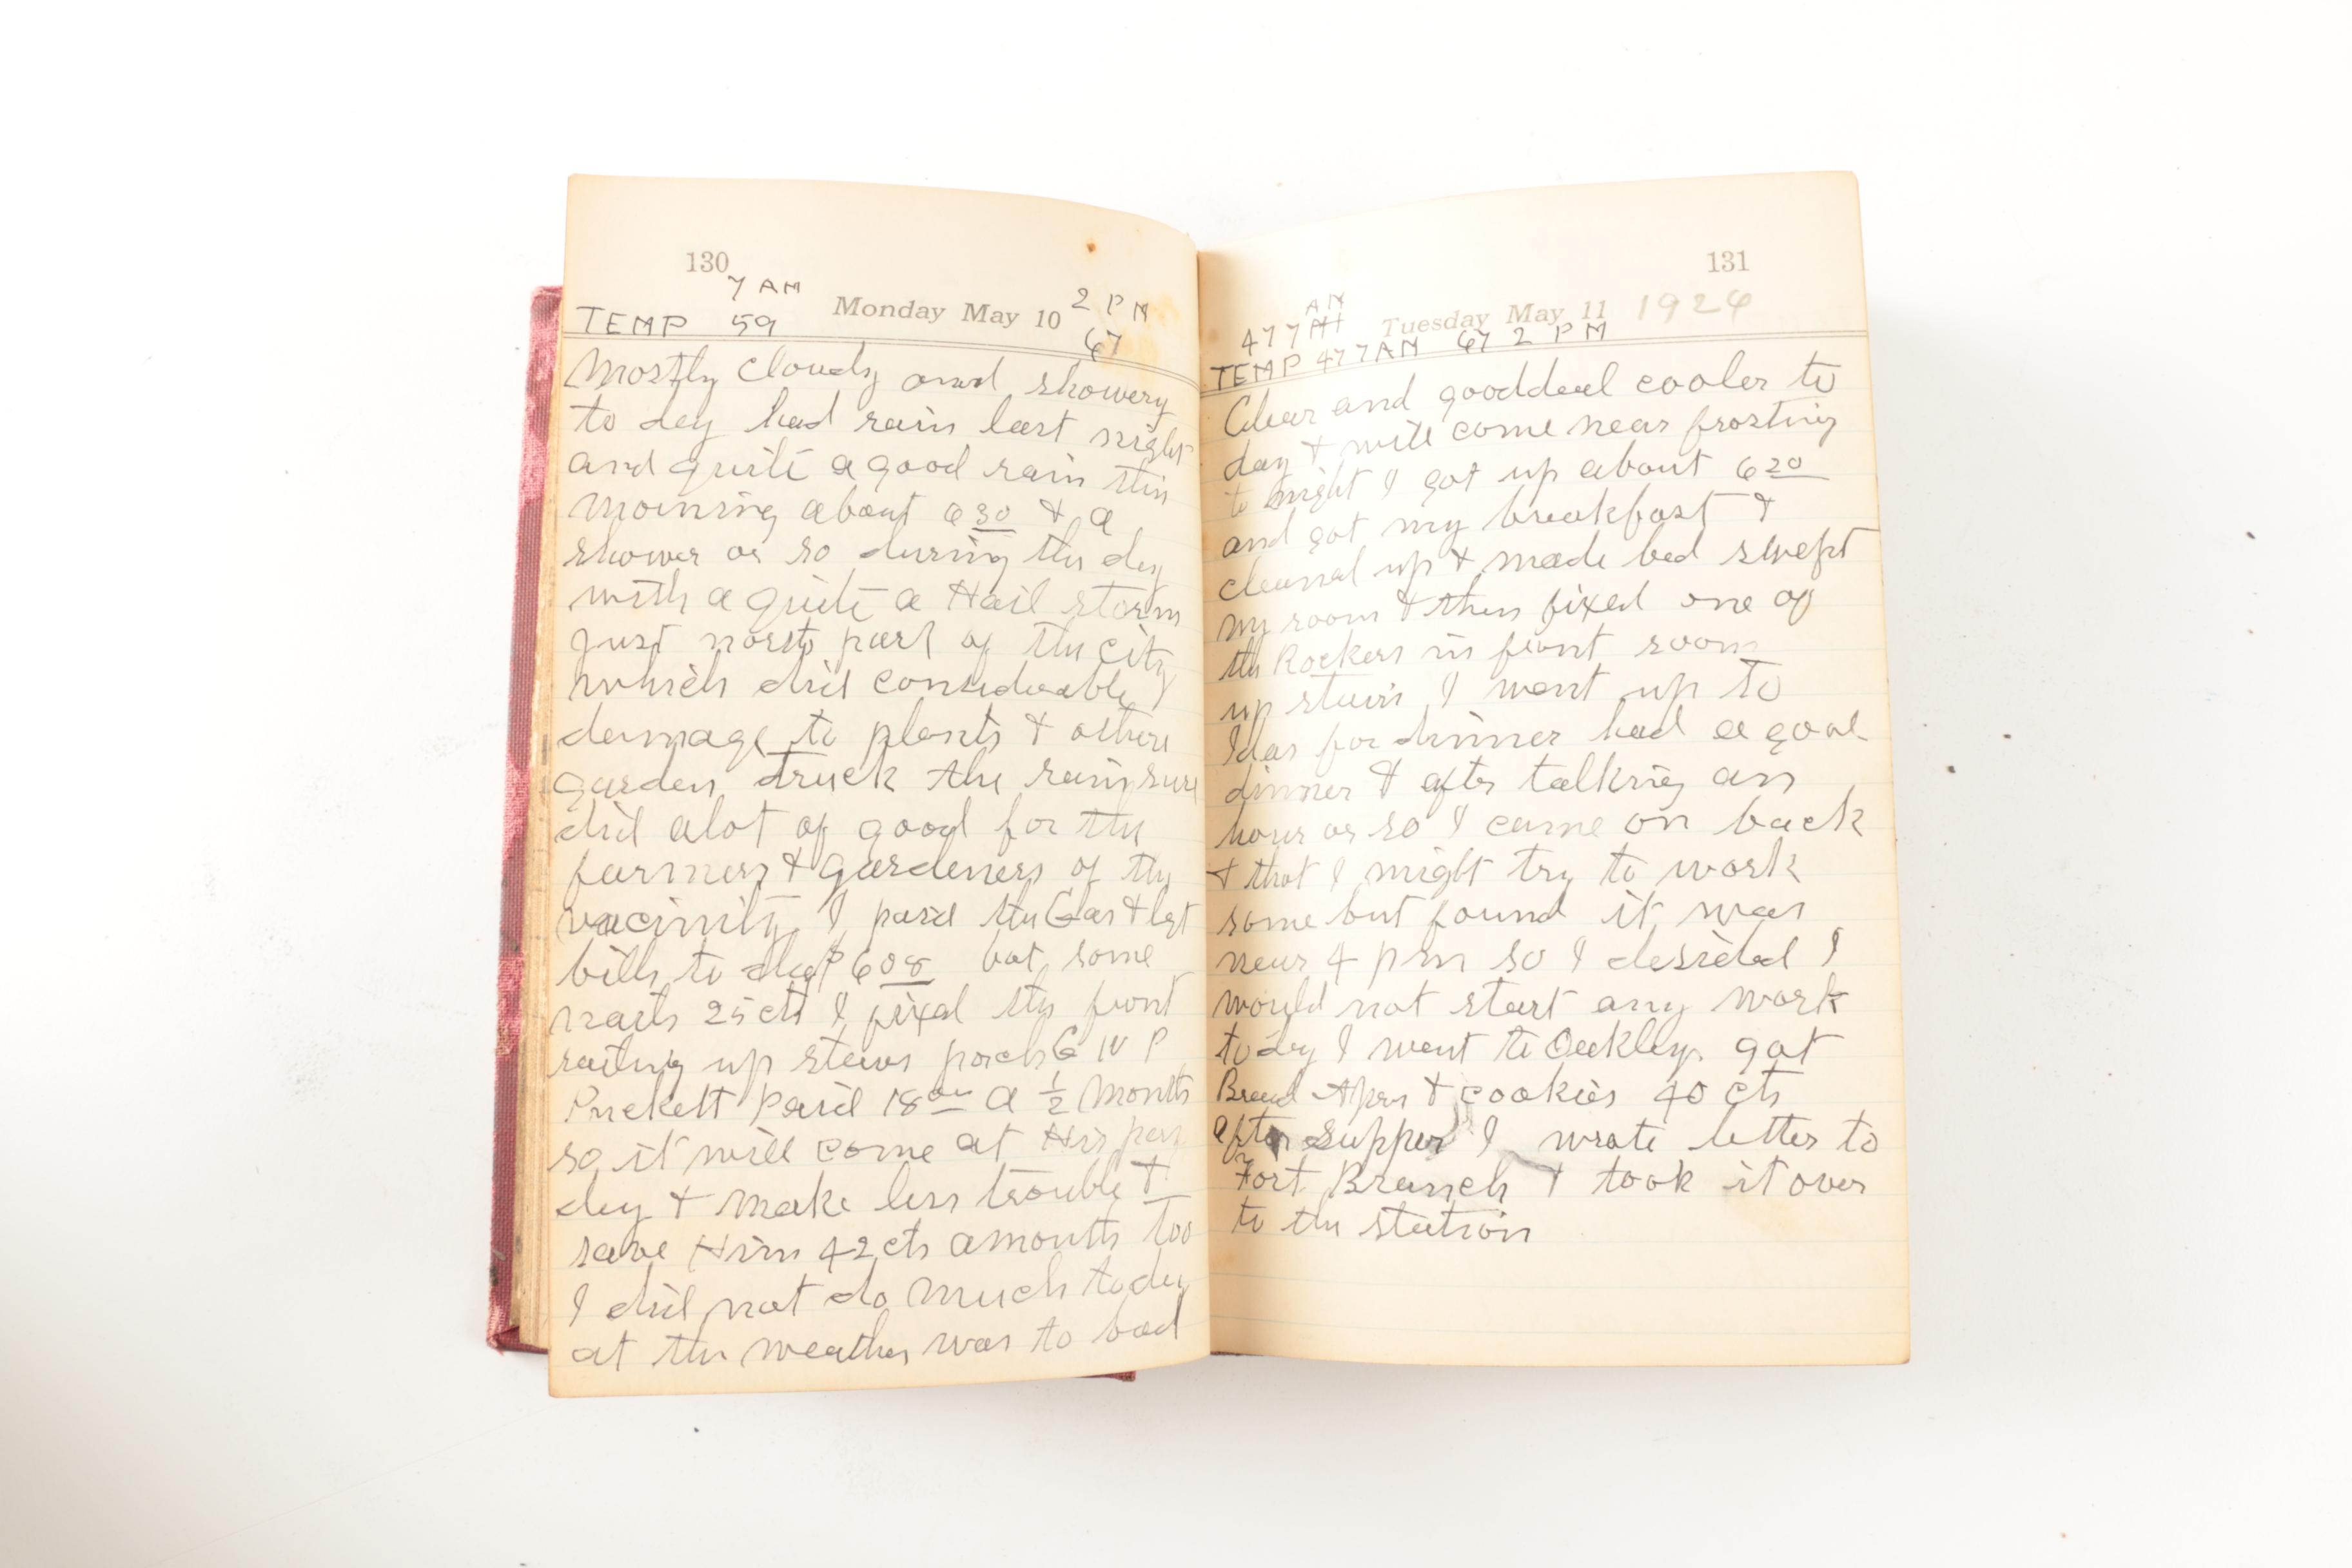 130
7 AM Monday May 10 2 PM
TEMP 59 67
Mostly Cloudy and showery
to day had rain last night
and quite a good rain this
morning about 6 30 & a
shower or so during the day
with a quite a Hail storm
Just north part of the city
which did considerable
damage to plants & others
garden truck the rain sure
did alot of good for the
farmers & gardeners of the
vacinity I paid the Gas & lgt
bills to day $ 6 08 bot some
nails 25 cts I fixed the front
railing up stairs porch G W P
Puckett Paid 18 00 a 1/2 Months
so it will come at His pay
day & make less trouble &
save Him 42 cts amonth too
I did not do much to day
at the weather was to bad
131
AM
47 7 Tuesday May 11 1926
TEMP 47 7 AM 67 2 PM
Clear and gooddeal cooler to
day & will come near frosting
to night I got up about 6 20
and got my breakfast &
cleaned up & made bed swept
my room & then fixed one of
the Rockers in front room
up stairs I went up to
Idas for dinner had a good
dinner & after talking an
hour or so I came on back
& that I might try to work
some but found it was
near 4 pm so I desided I
would not start any work
to day I went to Oakleys got
Bread & cookies 40 cts
after supper I wrote letter to
Fort Branch & took it over
to the station